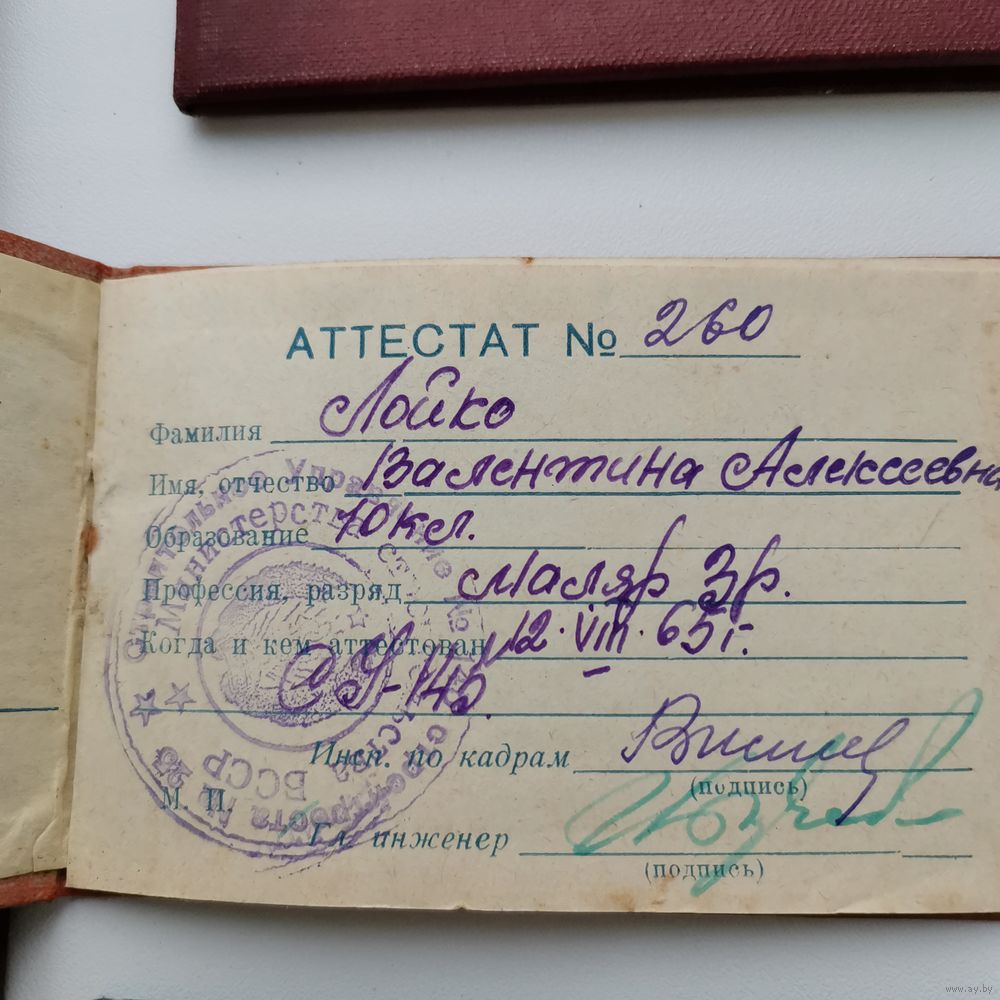 АТТЕСТАТ № 260
Фамилия Лойко
Имя, отчество Валентина Алексеевна
Образование 10 кл.
Профессия, разряд маляр 3р.
Когда и кем аттестован 12.VIII.65г.
СУ-145.
Инсп. по кадрам
(подпись)
М. П.
Гл. инженер
(подпись)
Строительное Управление №
Министерства
БССР
www.ay.by